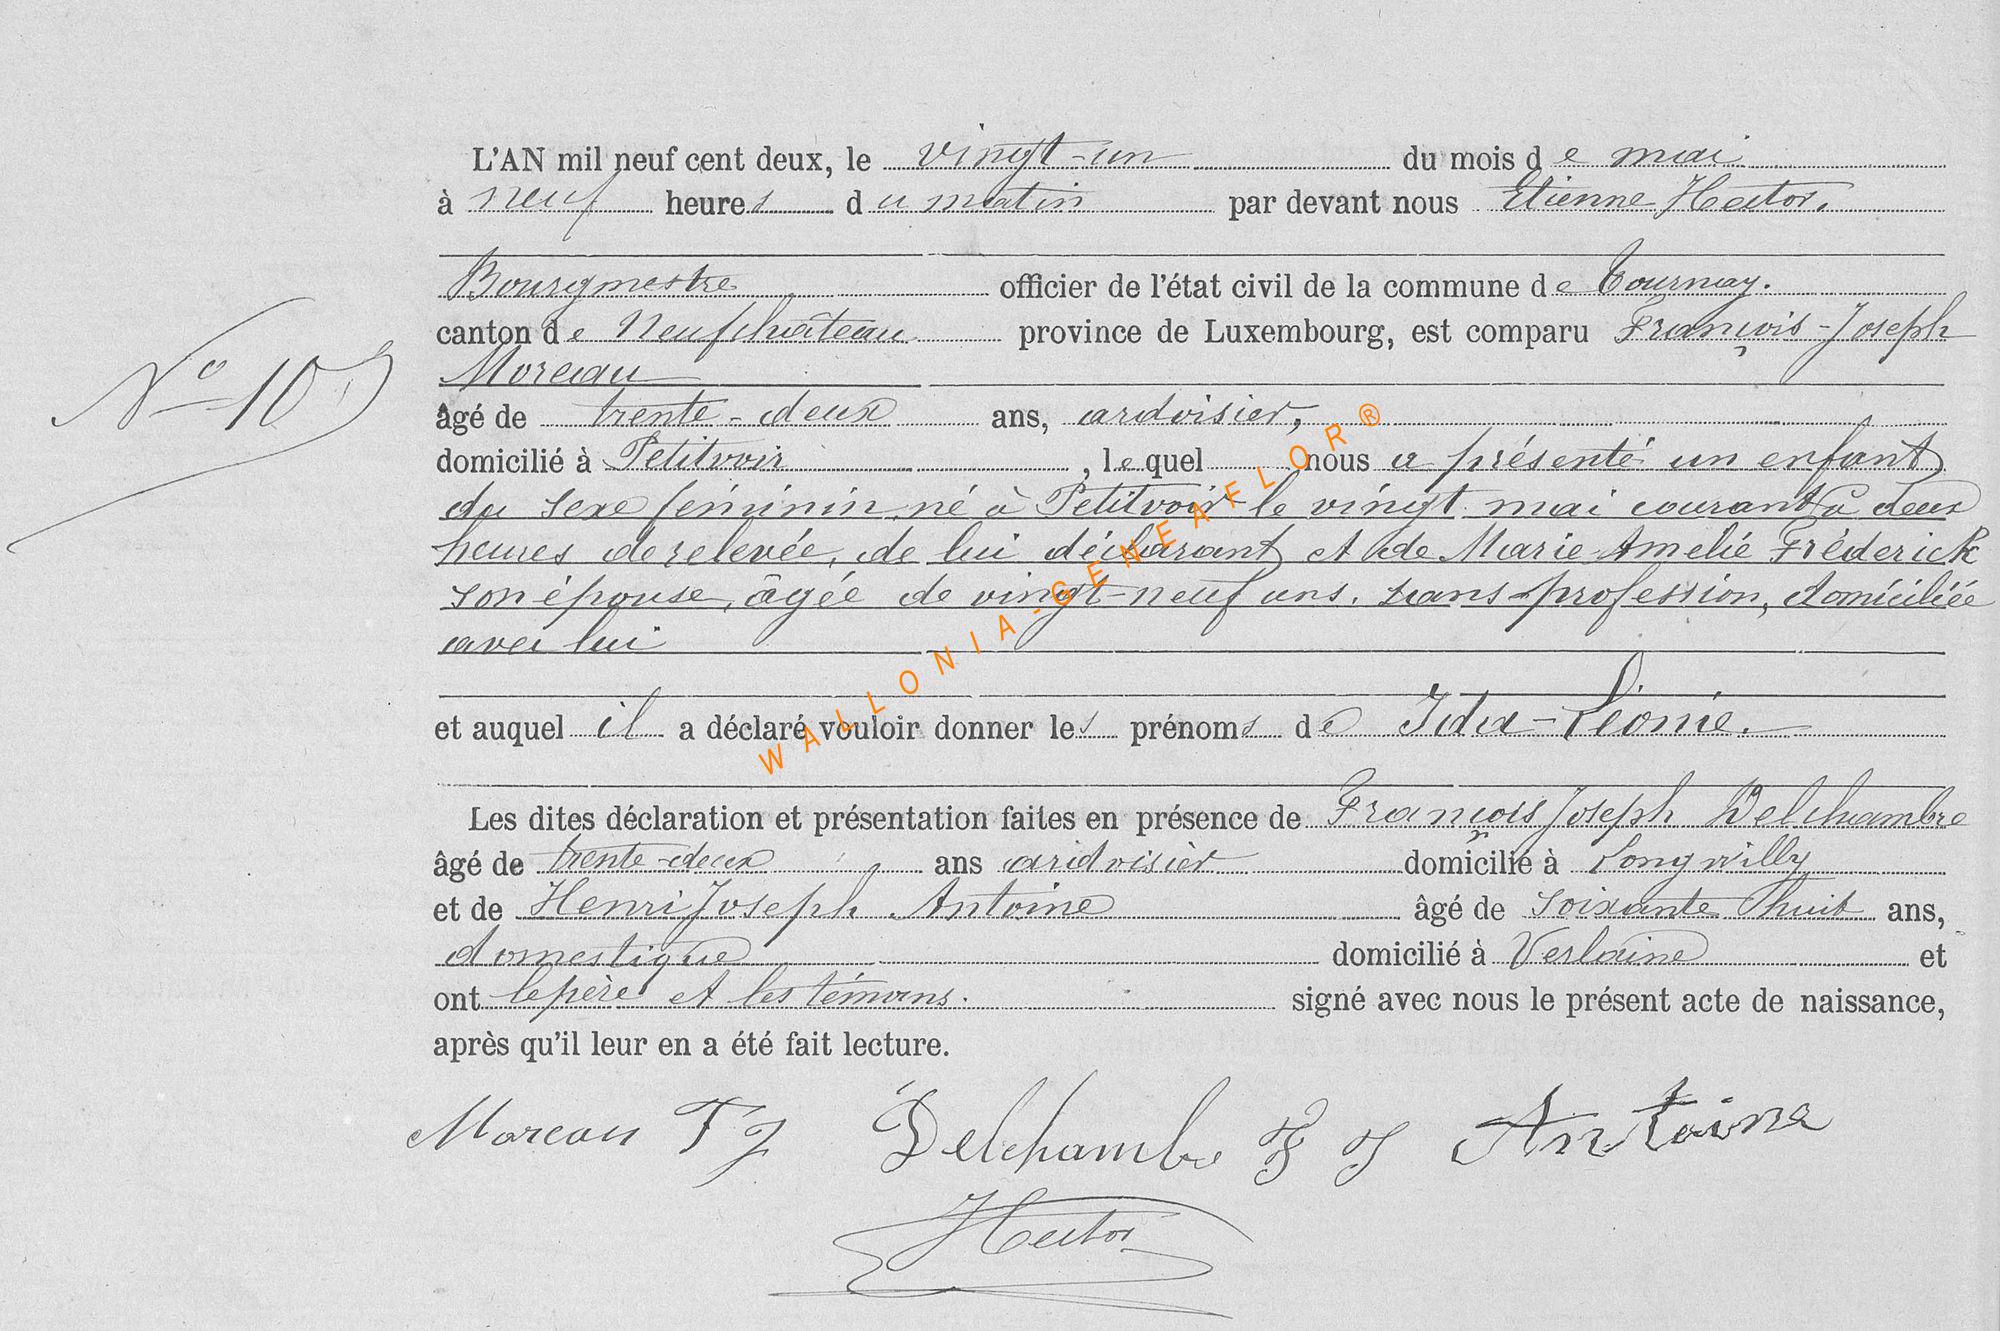 L'AN mil neuf cent deux, le vingt-un du mois de mai
à neuf heures du matin par devant nous Etienne Hector.
Bourgmestre officier de l'état civil de la commune de Tournay.
canton de Neufchâteau province de Luxembourg, est comparu François-Joseph
Moreau
N° 10
âgé de trente-deux ans, ardoisier,
domicilié à Petitvoir, lequel nous a présenté un enfant
du sexe féminin, né à Petitvoir le vingt mai courant à deux
heures de relevée, de lui déclarant et de Marie Amelié Fréderick
son épouse, âgée de vingt-neuf ans, sans profession, domiciliée
avec lui
et auquel il a déclaré vouloir donner les prénoms de Ida-Léonie.
Les dites déclaration et présentation faites en présence de François Joseph Delchambre
âgé de trente-deux ans ardoisier domicilié à Longwilly
et de Henri Joseph Antoine âgé de soixante huit ans,
domestique domicilié à Verlaine et
ont le père et les témoins. signé avec nous le présent acte de naissance,
après qu'il leur en a été fait lecture.
Moreau F J Delchambre F J Antoine
Hector
WALLONIA-GENEAFLOR®